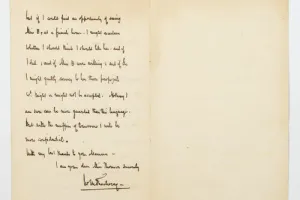 but if I could find an opportunity of seeing
Miss B. at a friend's house. I might
whether I should think I should like her. and if
I did, and if Miss B were willing and if so
I might quietly convey to her these proposals
wh might or might not be accepted. Nobody I
am sure can be more guarded than this language.
But after the of tomorrow I will be
more confidential.
With my best thanks to you
I am yours dear Miss sincerely